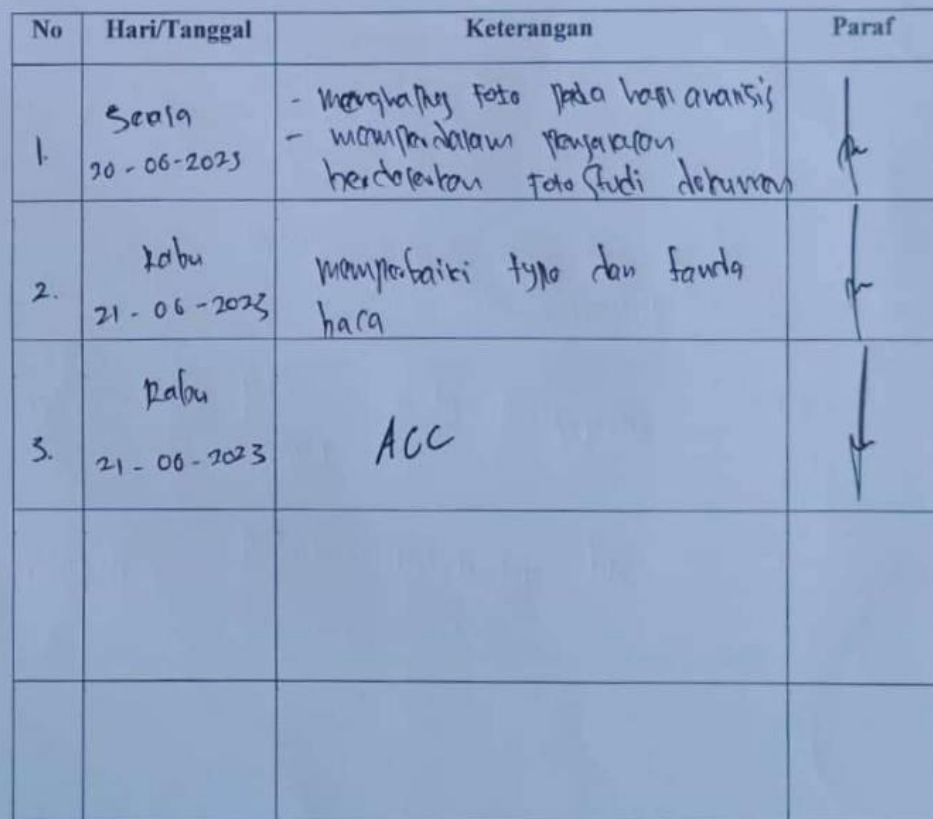 No Hari/Tanggal Keterangan Paraf
1. Selasa 20-06-2023 - menghapus foto pada hasil analisis
- memperdalam
berdasarkan foto studi dokumen
2. Rabu 21-06-2023 memperbaiki typo dan tanda
baca
3. Rabu 21-06-2023 ACC